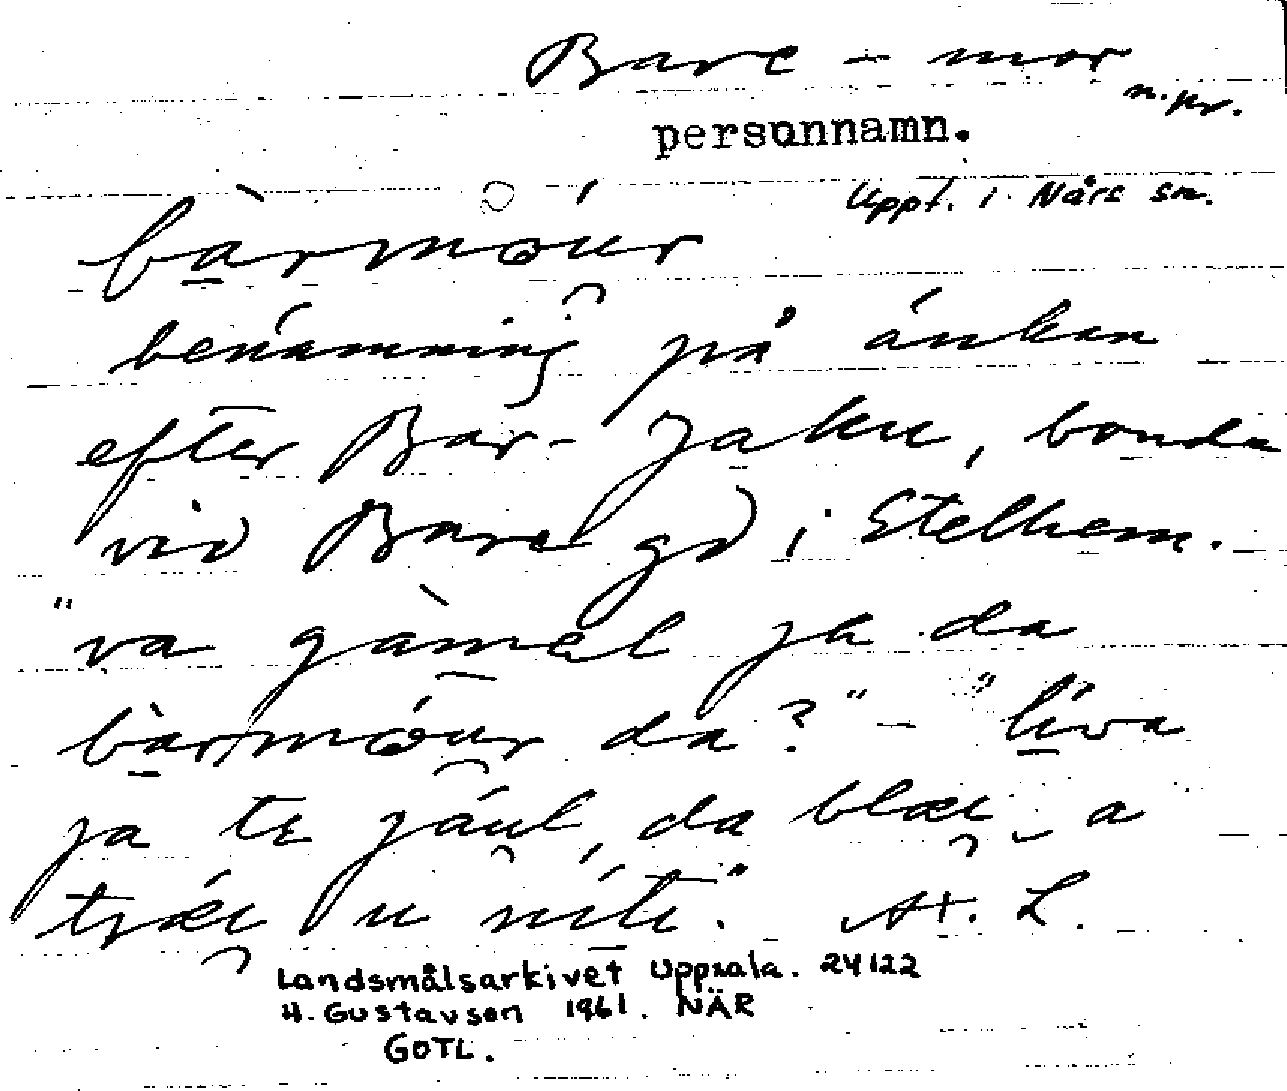 Bare - mor
n. pr.
personnamn.
Uppt. i Närs sn.
bàrmóur
benämning på änkan
efter Bar- Jaku, bonde
vid Bare gd i Stelhem.
"va gàmal ja da
bàrmóur da?" - "líva
ja te jául, da blæi a
træi u níti." A. L.
Landsmålsarkivet Uppsala. 24122
H. Gustavson 1961. NÄR
GOTL.